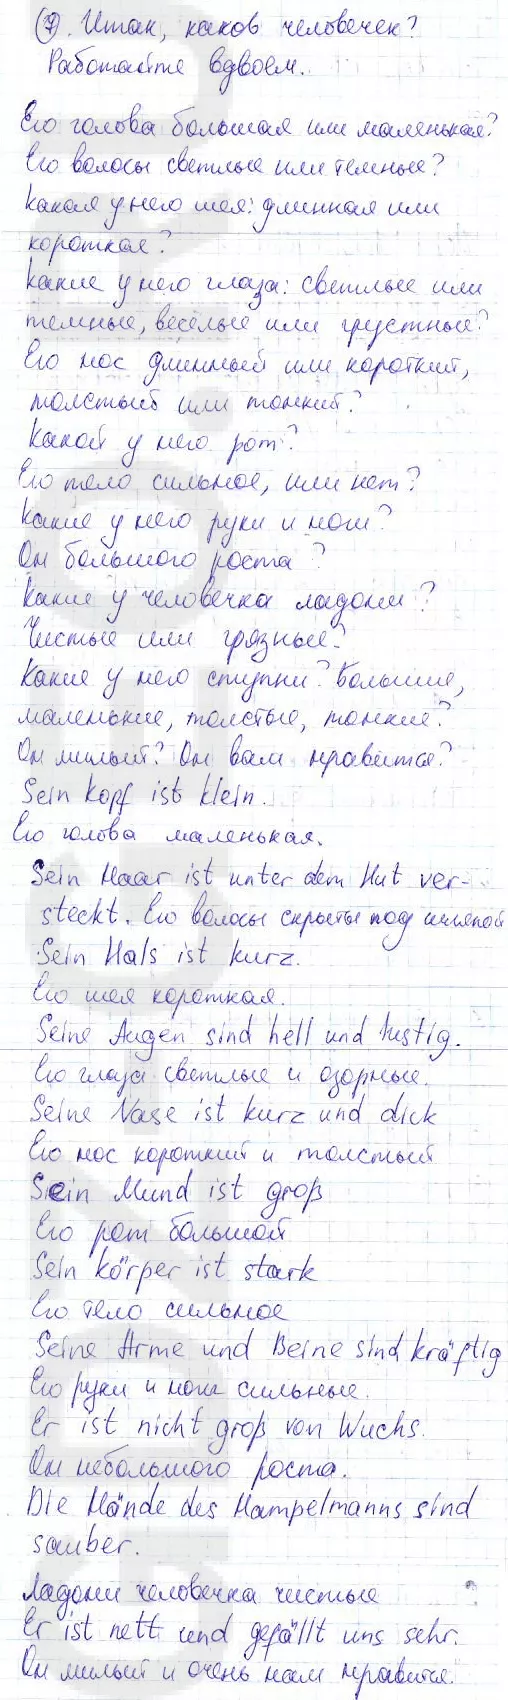 7. Итак, каков человечек?
Работайте вдвоем.
Его голова большая или маленькая?
Его волосы светлые или темные?
Какая у него шея: длинная или
короткая?
Какие у него глаза: светлые или
темные, весёлые или грустные?
Его нос длинный или короткий,
толстый или тонкий?
Какой у него рот?
Его тело сильное, или нет?
Какие у него руки и ноги?
Он большого роста?
Какие у человечка ладони?
Чистые или грязные?
Какие у него ступни? Большие,
маленькие, толстые, тонкие?
Он милый? Он вам нравится?
Sein Kopf ist klein.
Его голова маленькая.
Sein Haar ist unter dem Hut ver-
steckt. Его волосы скрыты под шляпой
Sein Hals ist kurz.
Его шея короткая.
Seine Augen sind hell und lustig.
Его глаза светлые и озорные.
Seine Nase ist kurz und dick
Его нос короткий и толстый
Sein Mund ist groß
Его рот большой
Sein Körper ist stark
Его тело сильное
Seine Arme und Beine sind kräftig
Его руки и ноги сильные.
Er ist nicht groß von Wuchs.
Он небольшого роста.
Die Hände des Hampelmanns sind
sauber.
Ладони человечка чистые
Er ist nett und gefällt uns sehr.
Он милый и очень нам нравится.